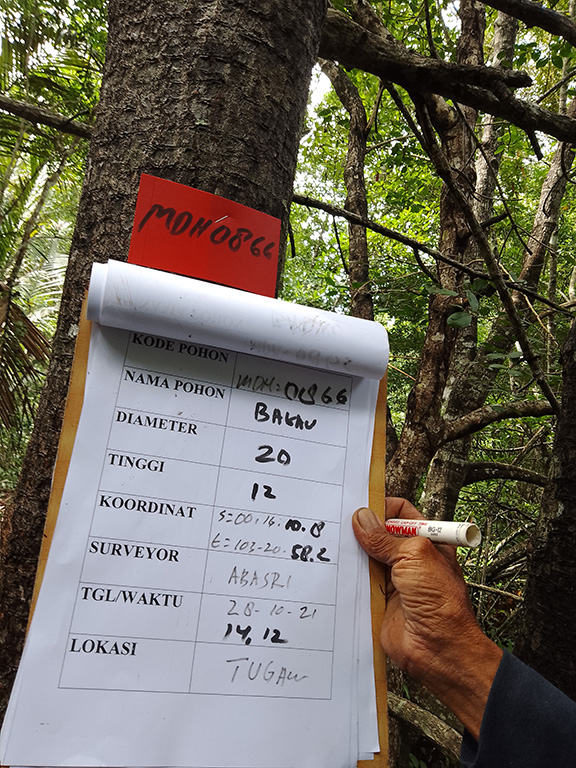 MDH0866
KODE POHON
NAMA POHON MDH=0866
DIAMETER BAKAU
TINGGI 20
12
KOORDINAT S=00.16.10.8
E=103-20.58.2
SURVEYOR ABASRI
TGL/WAKTU 28-10-21
14.12
LOKASI TUGAU
SNOWMAN BG-12